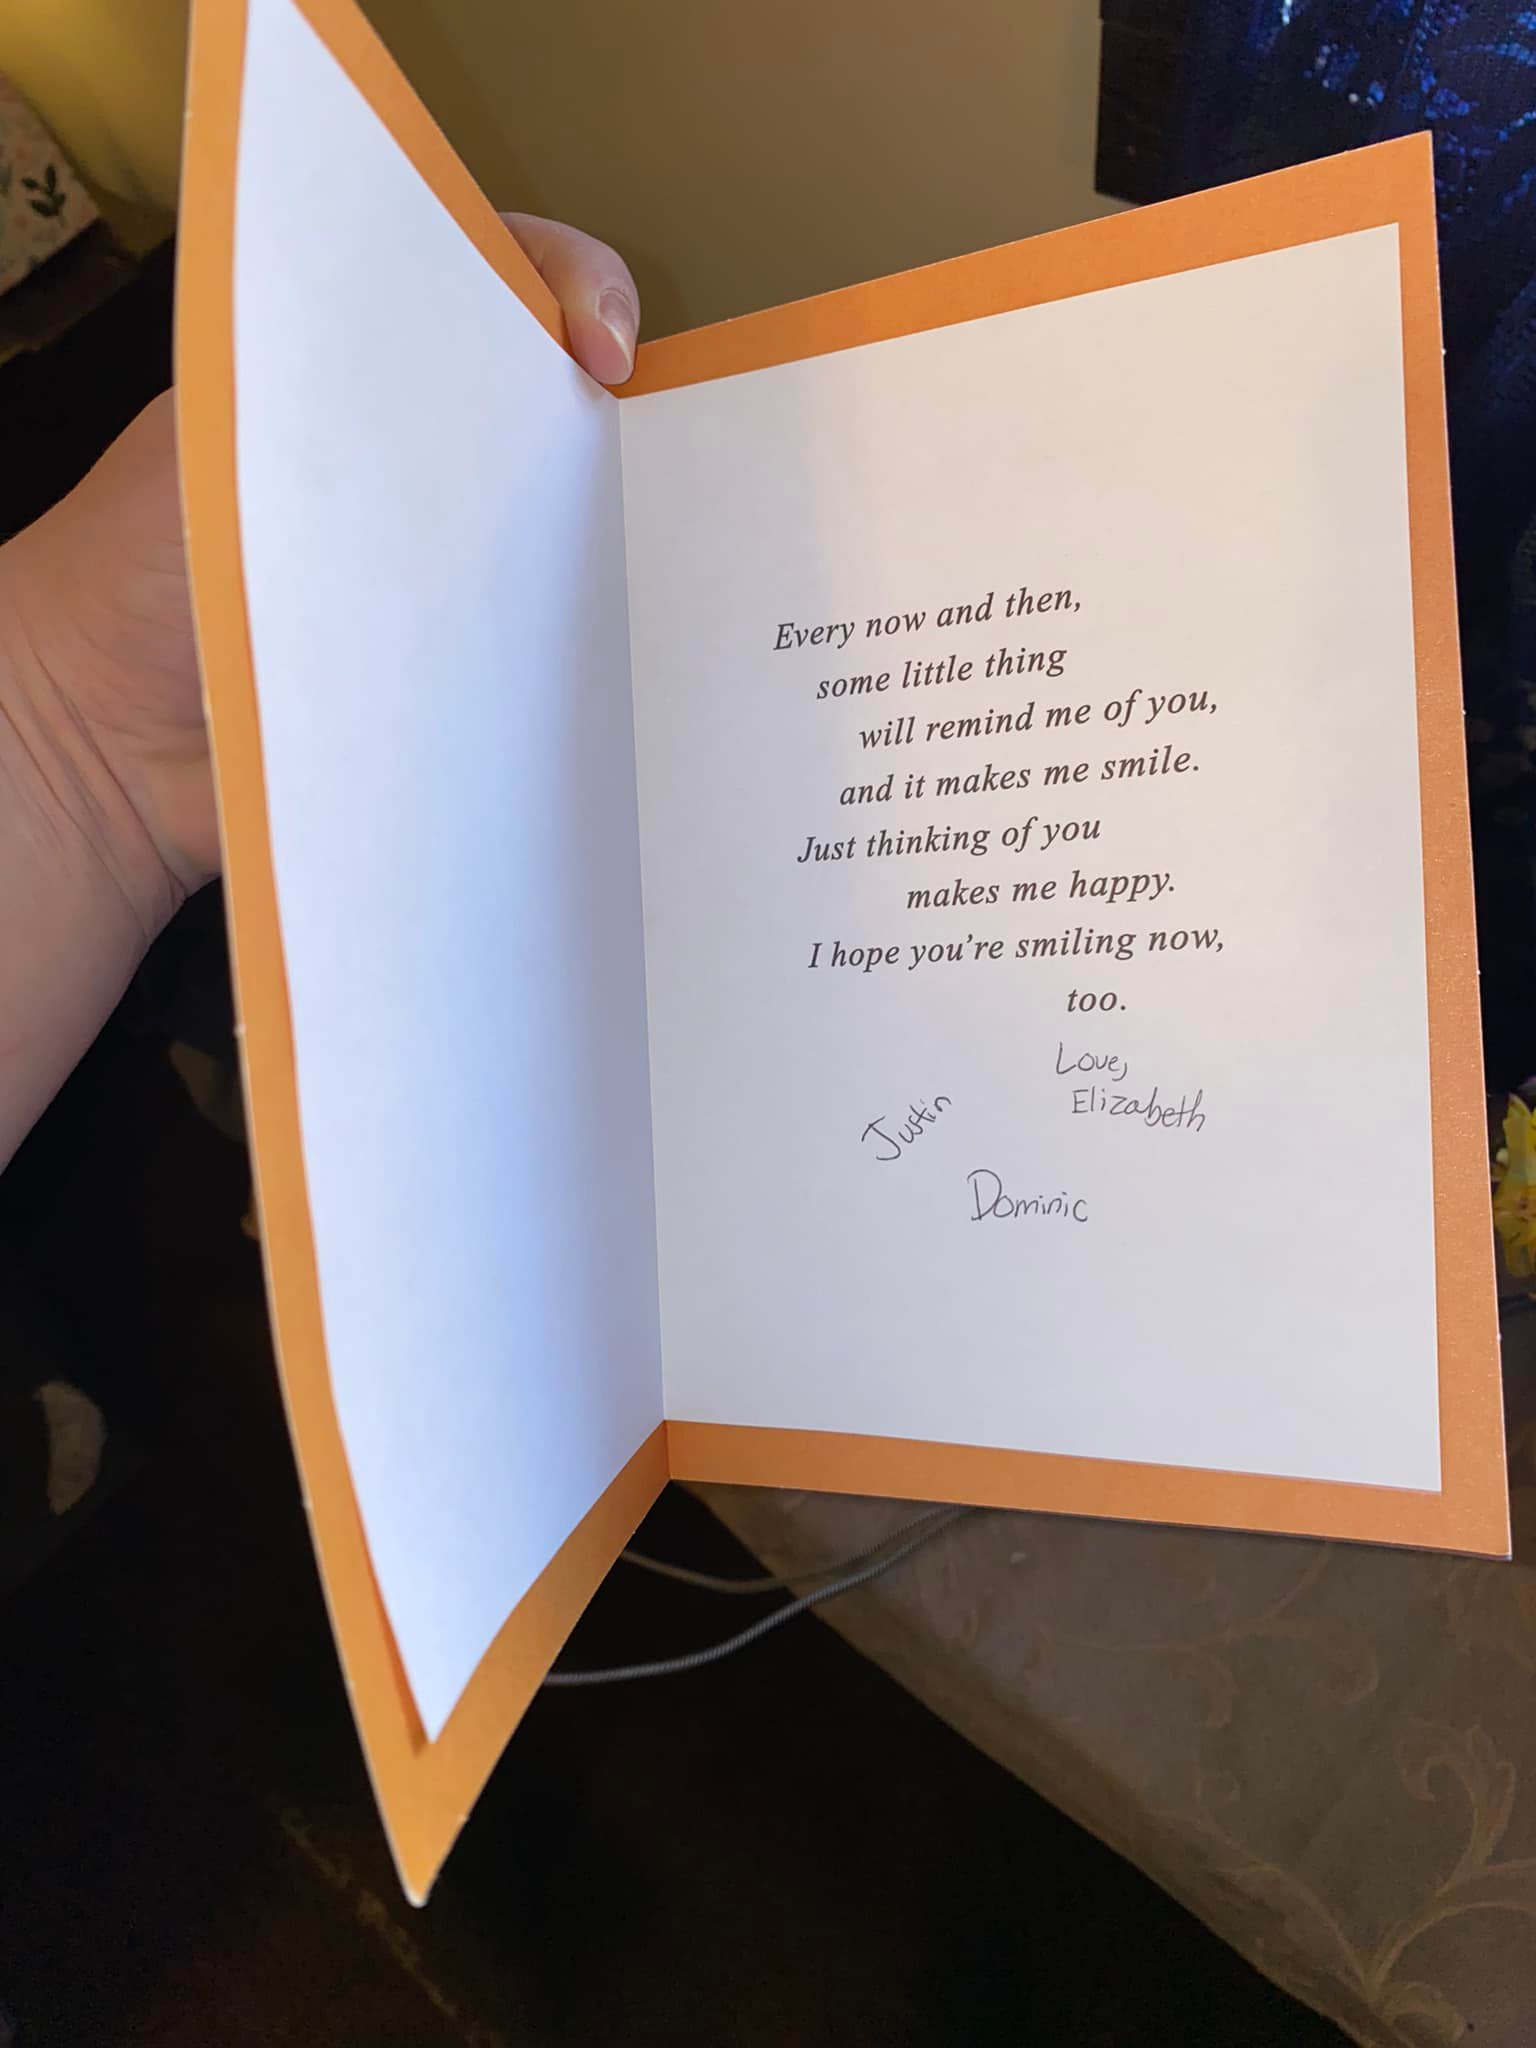 Every now and then,
some little thing
will remind me of you,
and it makes me smile.
Just thinking of you
makes me happy.
I hope you’re smiling now,
too.
Love,
Elizabeth
Justin
Dominic